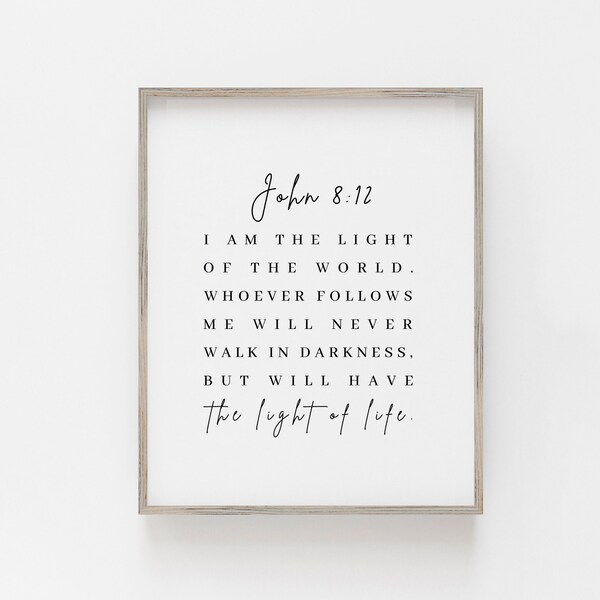 John 8:12
I AM THE LIGHT
OF THE WORLD.
WHOEVER FOLLOWS
ME WILL NEVER
WALK IN DARKNESS,
BUT WILL HAVE
the light of life.